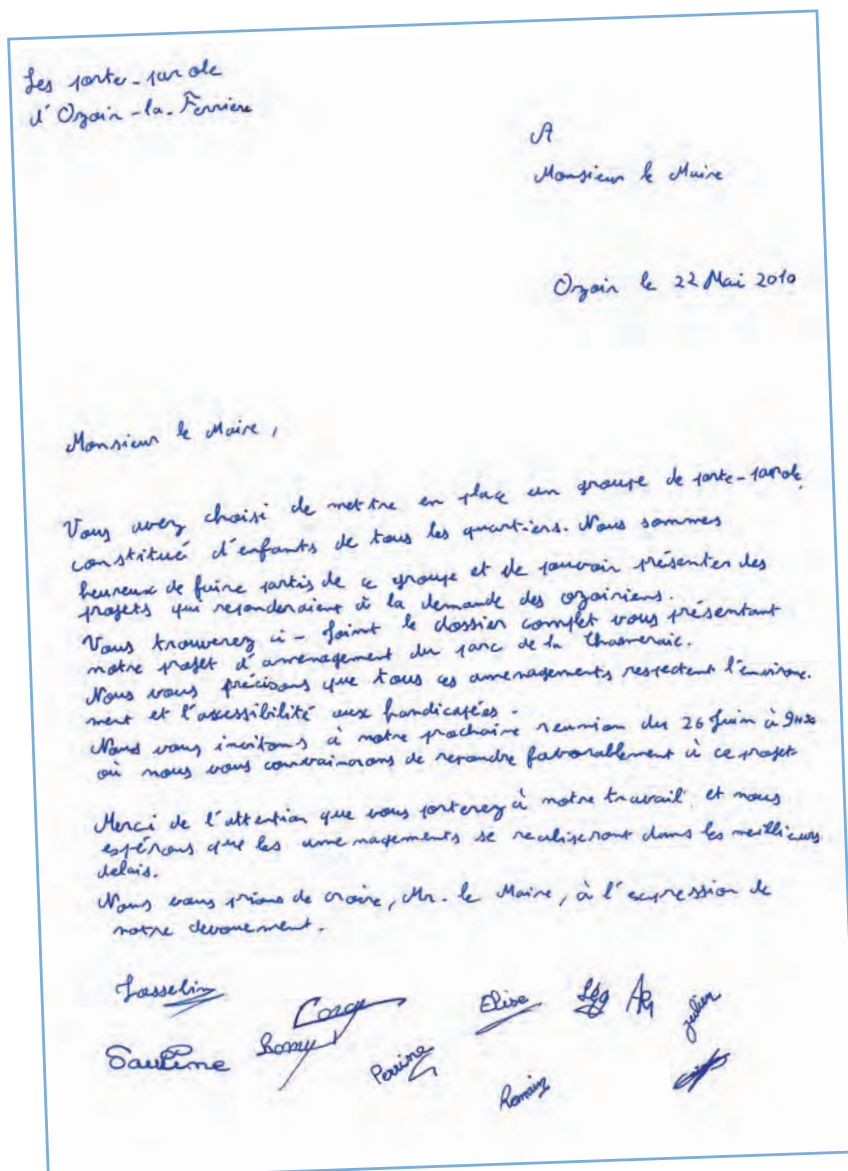 Les porte-parole
d'Ozoir-la-Ferrière
A
Monsieur le Maire
Ozoir le 22 Mai 2010
Monsieur le Maire,
Vous avez choisi de mettre en place un groupe de porte-parole,
constitué d'enfants de tous les quartiers. Nous sommes
heureux de faire partis de ce groupe et de pouvoir présenter des
projets qui reponderaient à la demande des ozoiriens.
Vous trouverez ci-joint le dossier complet vous présentant
notre projet d'aménagement du parc de la Chasneraie.
Nous vous précisons que tous ces amenagements respectent l'environe-
ment et l'accessibilité aux handicapées.
Nous vous invitons à notre prochaine reunion du 26 Juin à 9H30
où nous vous convaincrons de repondre favorablement à ce projet
Merci de l'attention que vous porterez à notre travail, et nous
espérons que les amenagements se realiseront dans les meilleurs
delais.
Nous vous prions de croire, Mr. le Maire, à l'expression de
notre devouement.
Josselin
Elise
Léa
julien
Perrine
Romain